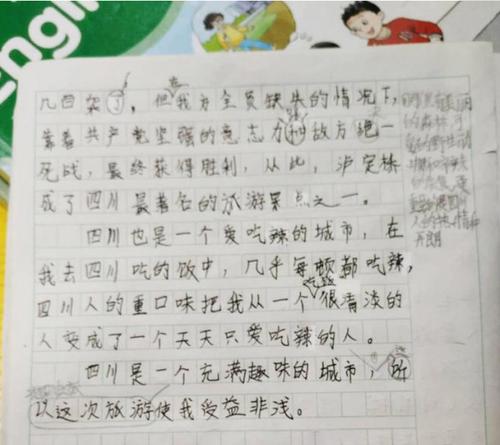 English
几四架了，但我方全员缺失的情况下，
靠着共产党坚强的意志力和敌方绝一
死战，最终获得胜利，从此，泸定桥
成了四川最著名的旅游景点之一。
四川也是一个爱吃辣的城市，在
我去四川吃的饭中，几乎每顿都吃辣，
四川人的重口味把我从一个很清淡的
人变成了一个天天只爱吃辣的人。
四川是一个充满趣味的城市，所
以这次旅游使我受益非浅。